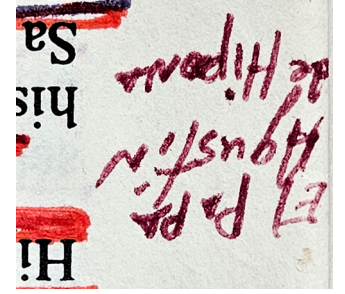 El Papa
Agustín
de Hipona
Hi
his
Sa